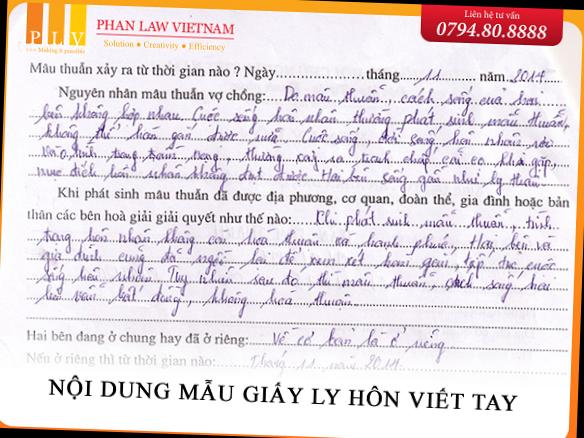 PLV
Making it possible
PHAN LAW VIETNAM
Solution ● Creativity ● Efficiency
Liên hệ tư vấn
0794.80.8888
Mâu thuẫn xảy ra từ thời gian nào ? Ngày..........tháng.....11.....năm 2014
Nguyên nhân mâu thuẫn vợ chồng: Do mâu thuẫn cách sống của hai
bên không hợp nhau. Cuộc sống hôn nhân thường phát sinh mâu thuẫn,
không thể hàn gắn được nữa. Cuộc sống, đời sống hôn nhân rơi
vào tình trạng trầm trọng, thường xảy ra tranh cãi
mục đích hôn nhân không đạt được. Hai bên sống gần như ly thân
Khi phát sinh mâu thuẫn đã được địa phương, cơ quan, đoàn thể, gia đình hoặc bản
thân các bên hoà giải giải quyết như thế nào: Khi phát sinh mâu thuẫn, tình
trạng hôn nhân không còn hoà thuận và hạnh phúc. Hai bên và
gia đình cũng đã ngồi lại để xem xét hàn gắn, tiếp tục cuộc
sống hôn nhân. Tuy nhiên sau đó thì mâu thuẫn, cách sống hai
bên vẫn bất đồng, không hoà thuận
Hai bên đang ở chung hay đã ở riêng: Về cơ bản là ở riêng
Nếu ở riêng thì từ thời gian nào: Tháng 11 năm 2014
NỘI DUNG MẪU GIẤY LY HÔN VIẾT TAY